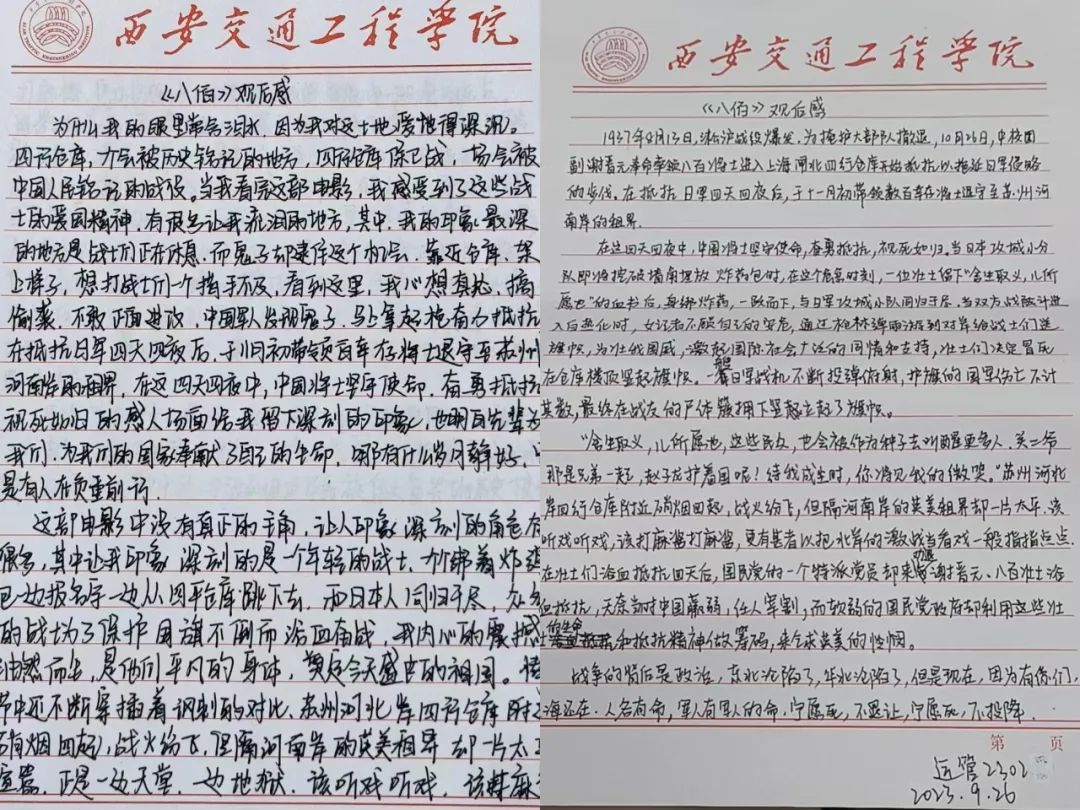 西安交通工程学院
《八佰》观后感
为什么我的眼里常含泪水,因为我对这土地爱地得深沉。
四行仓库,一个会被历史铭记的地方,四行仓库保卫战,一场会被
中国人民铭记的战役。当我看完这部电影,我感受到了这些战
士的爱国精神,有很多让我流泪的地方,其中,我的印象最深
的地方是战士们正在休息,而鬼子却趁这个机会,靠近仓库,架
上梯子,想打战士们一个措手不及,看到这里,我心想真,搞
偷袭,不敢正面进攻,中国军人发现鬼子,马上拿起枪奋力抵抗
在抵抗日军四天四夜后,于11月初带领百年存将士退守至苏州
河南岸的租界,在这四天四夜中,中国将士坚守使命,奋勇抵抗
视死如归的感人场面给我留下深刻的印象,也明白先辈为
我们,为我们的国家奉献了自己的生命,哪有什么岁月静好,
是有人在负重前行.
这部电影中没有真正的主角,让人印象深刻的角色有
很多,其中让我印象深刻的是一个年轻的战士,一个绑着炸
包一边报名字一边从四平仓库跳下去,和日本人同归于尽,
的战士为了保护国旗不倒而浴血奋战,我内心的震撼
油然而生,是他们平凡的身体,奠定今天盛世的祖国。
节中还不断穿插着讽刺的对比,苏州河北岸四行仓库附近
硝烟四起,战火纷飞,但隔河南岸的英美租界却一片太
喧嚣,正是一边天堂,一边地狱,该听戏听戏,该搓麻
西安交通工程学院
《八佰》观后感
1937年8月13日,淞沪战役爆发,为掩护大部队撤退,10月26日,中校团
副谢晋元奉命率领八百将士进入上海闸北四行仓库开始抵抗以拖延日军侵略
的步伐。在抵抗日军四天四夜后,于十一月初带领数百幸存将士退守至苏州河
南岸的租界.
在这四天四夜中,中国将士坚守使命,奋勇抵抗,视死如归。当日本攻城小分
队即将挖破墙角埋放炸药包时,在这个危急时刻,一位壮士留下“舍生取义,儿所
愿也”的血书后,身绑炸药,一跃而下,与日军攻城小队同归于尽。当双方战略斗进
入后恶化时,女记者不顾自己的安危,通过枪林弹雨游到对岸给战士们送
旗帜,为壮我国威,激起国际社会广泛的同情和支持,壮士们决定冒死
在仓库楼顶竖起旗帜。日军战机不断投弹俯射,护旗的国军伤亡不计
其数,最终在战友的尸体簇拥下竖起了旗帜。
“舍生取义,儿所愿也,这些民众,也会被作为种子去叫醒更多人。关二爷
那是兄弟一起,赵子龙护着国呢!待我成尘时,你将见我的微笑。”苏州河北
岸四行仓库附近硝烟四起,战火纷飞,但隔河南岸的英美租界却一片太平,该
听戏听戏,该打麻酱打麻酱,更有甚者以把北岸的激战当看戏一般指指点点.
在壮士们浴血抵抗四天后,国民党的一个特派党员却来劝退谢晋元。八百壮士浴
血抵抗,无奈当时中国羸弱,任人宰割;而软弱的国民党政府却利用这些壮
士的生命和抵抗精神做筹码,来乞求英美的怜悯。
战争的背后是政治,东北沦陷了,华北沦陷了,但是现在,因为有你们,
海还在.人各有命,军人有军人的命,宁愿死,不退让,宁愿死,不投降.
第 页
运管2302
2023.9.26